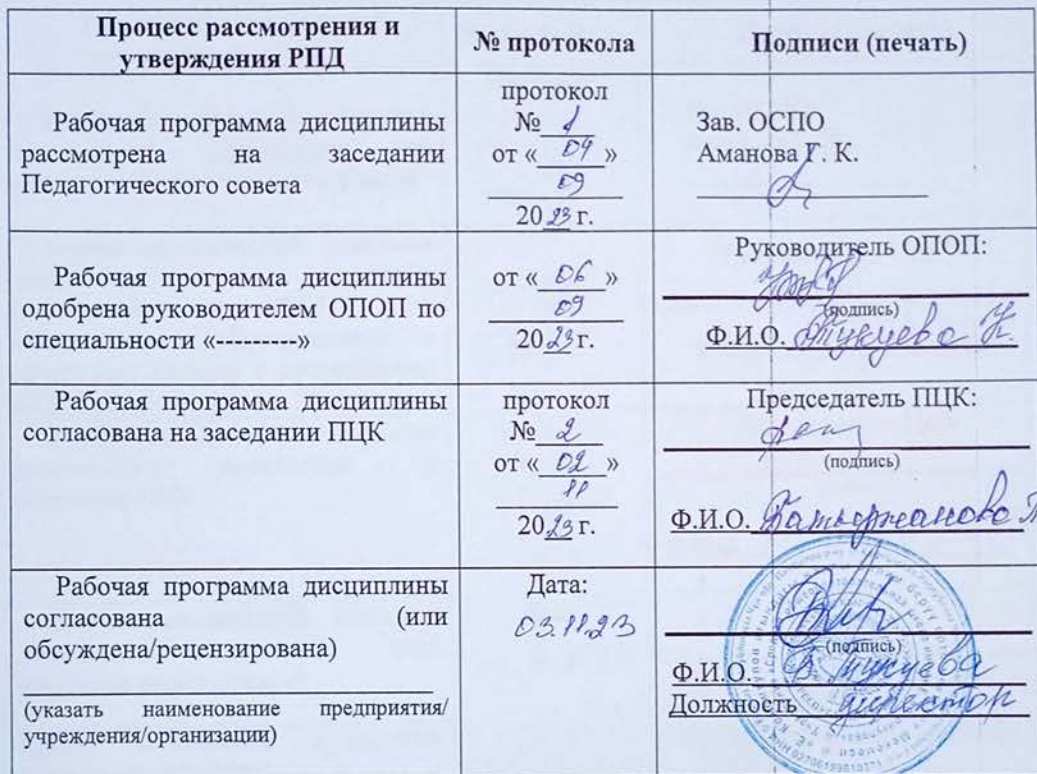 Процесс рассмотрения и утверждения РПД
№ протокола
Подписи (печать)
Рабочая программа дисциплины
рассмотрена на заседании
Педагогического совета
протокол
№ 1
от « 04 »
09
2023 г.
Зав. ОСПО
Аманова Г. К.
Рабочая программа дисциплины
одобрена руководителем ОПОП по
специальности «---------»
от « 06 »
09
2023 г.
Руководитель ОПОП:
(подпись)
Ф.И.О.
Рабочая программа дисциплины
согласована на заседании ПЦК
протокол
№ 2
от « 02 »
11
2023 г.
Председатель ПЦК:
(подпись)
Ф.И.О.
Рабочая программа дисциплины
согласована (или
обсуждена/рецензирована)
(указать наименование предприятия/
учреждения/организации)
Дата:
03.11.23
(подпись)
Ф.И.О.
Должность директор